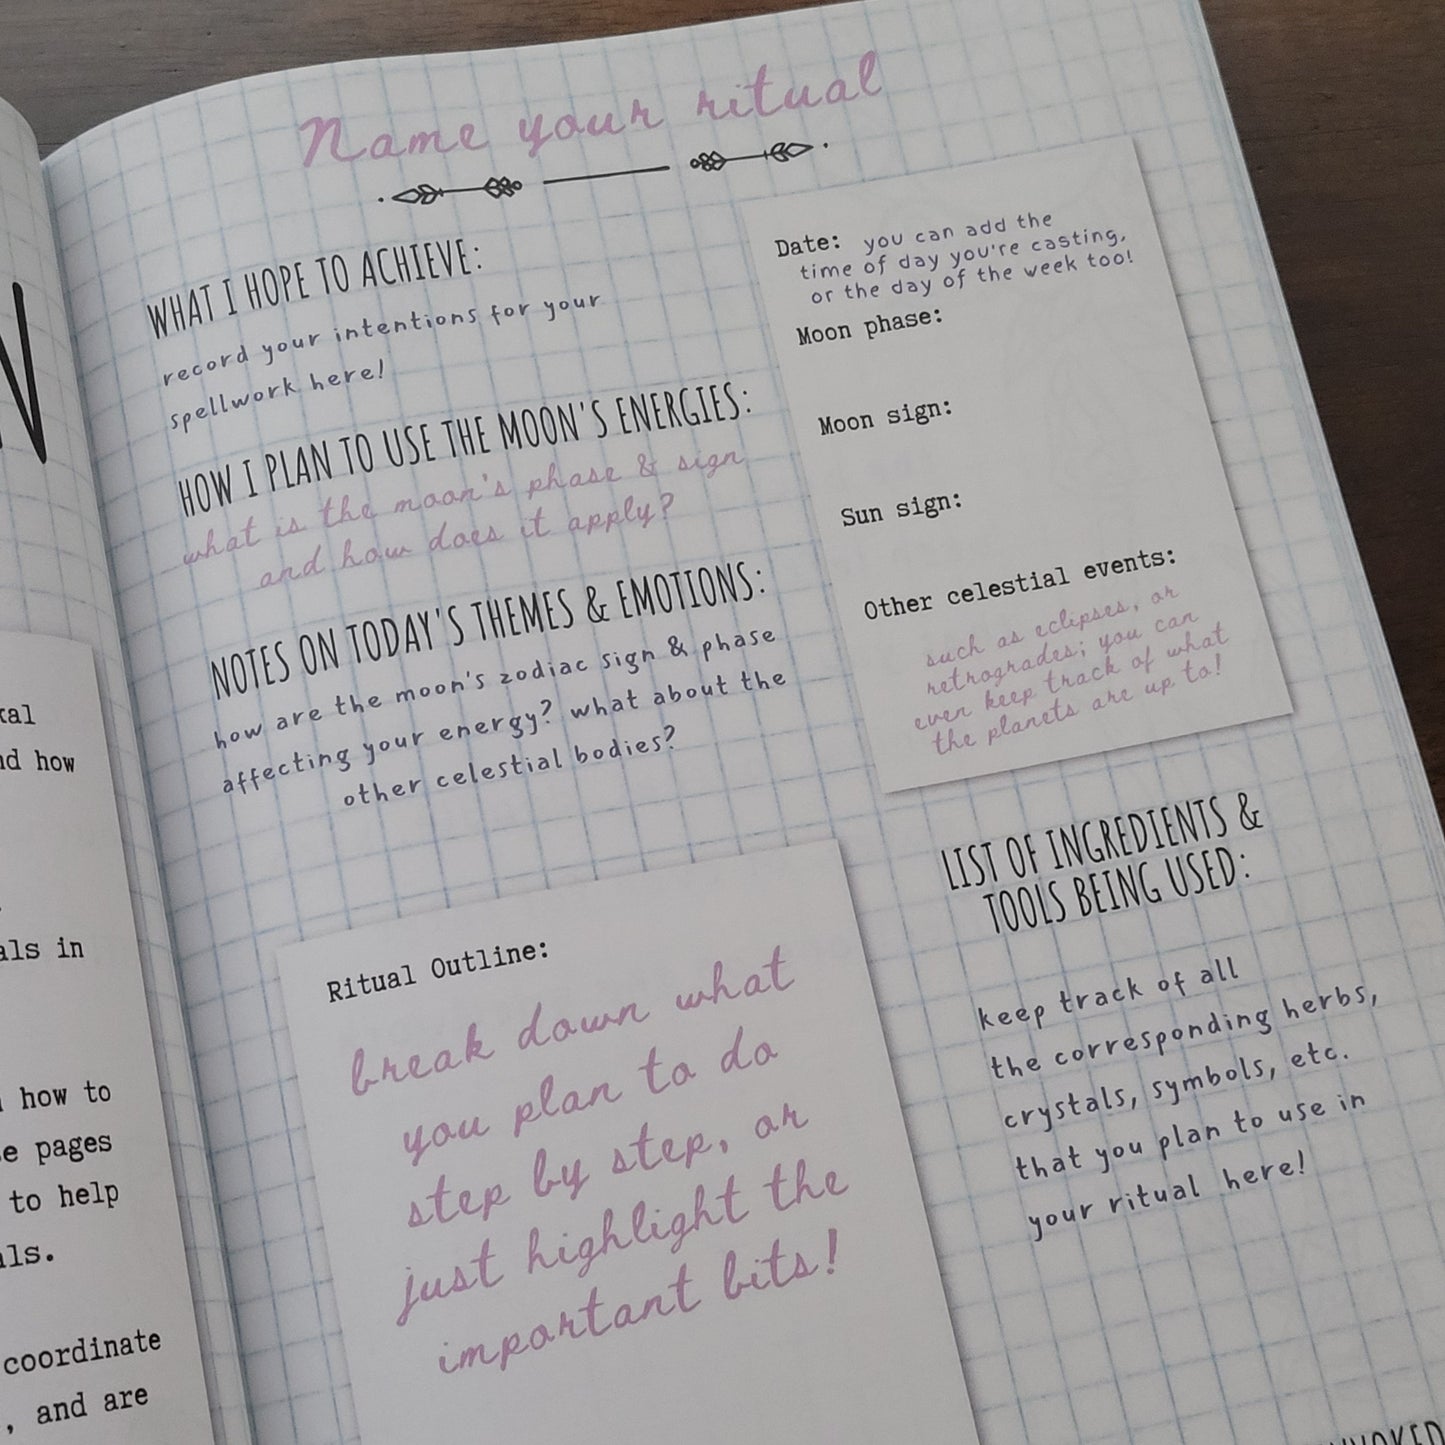 Name your ritual
WHAT I HOPE TO ACHIEVE:
record your intentions for your
spellwork here!
HOW I PLAN TO USE THE MOON'S ENERGIES:
what is the moon's phase & sign
and how does it apply?
NOTES ON TODAY'S THEMES & EMOTIONS:
how are the moon's zodiac sign & phase
affecting your energy? what about the
other celestial bodies?
Date: you can add the
time of day you're casting,
or the day of the week too!
Moon phase:
Moon sign:
Sun sign:
Other celestial events:
such as eclipses, or
retrogrades; you can
even keep track of what
the planets are up to!
Ritual Outline:
break down what
you plan to do
step by step, or
just highlight the
important bits!
LIST OF INGREDIENTS &
TOOLS BEING USED:
keep track of all
the corresponding herbs,
crystals, symbols, etc.
that you plan to use in
your ritual here!
how
in
how to
pages
to help
coordinate
, and are